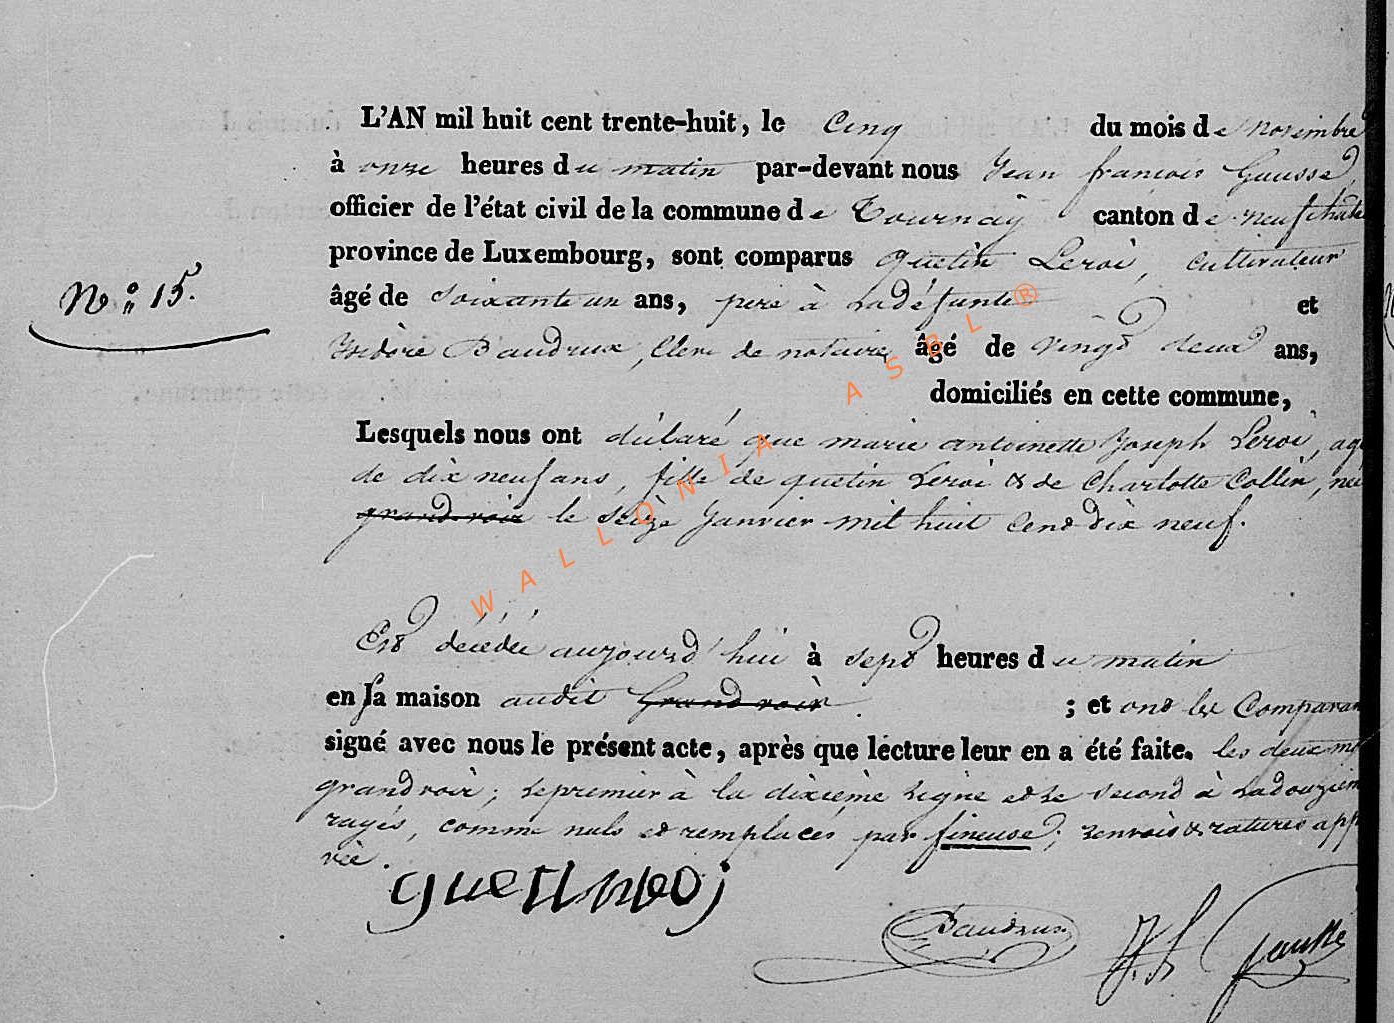 L'AN mil huit cent trente-huit, le Cinq du mois de novembre
à onze heures du matin par-devant nous Jean françois Gausse,
officier de l'état civil de la commune de Tournay canton de neufchâte
province de Luxembourg, sont comparus quetin Leroi, cultivateur
N.° 15.
âgé de Soixante un ans, pere à la défunte et
Isidore Baudrux, Clerc de notaire, âgé de vingt deux ans,
domiciliés en cette commune,
Lesquels nous ont déclaré que marie antoinette Joseph Leroi, agé
de dix neuf ans, fille de quetin Leroi & de Charlotte Collin, née
grandvoir le Seize Janvier mil huit Cent dix neuf.
Est décédée aujourd'hui à Sept heures du matin
en Sa maison audit Grandvoir ; et ont les Comparan
signé avec nous le présent acte, après que lecture leur en a été faite. les deux mo
grandvoir ; le premier à la dixième Ligne et le Second à la douziem
rayés, comme nuls et remplacés par fineuse ; renvois & ratures app
vée.
quetin leroi
Baudrux
J. f. Gausse
WALLONIA ASBL ®